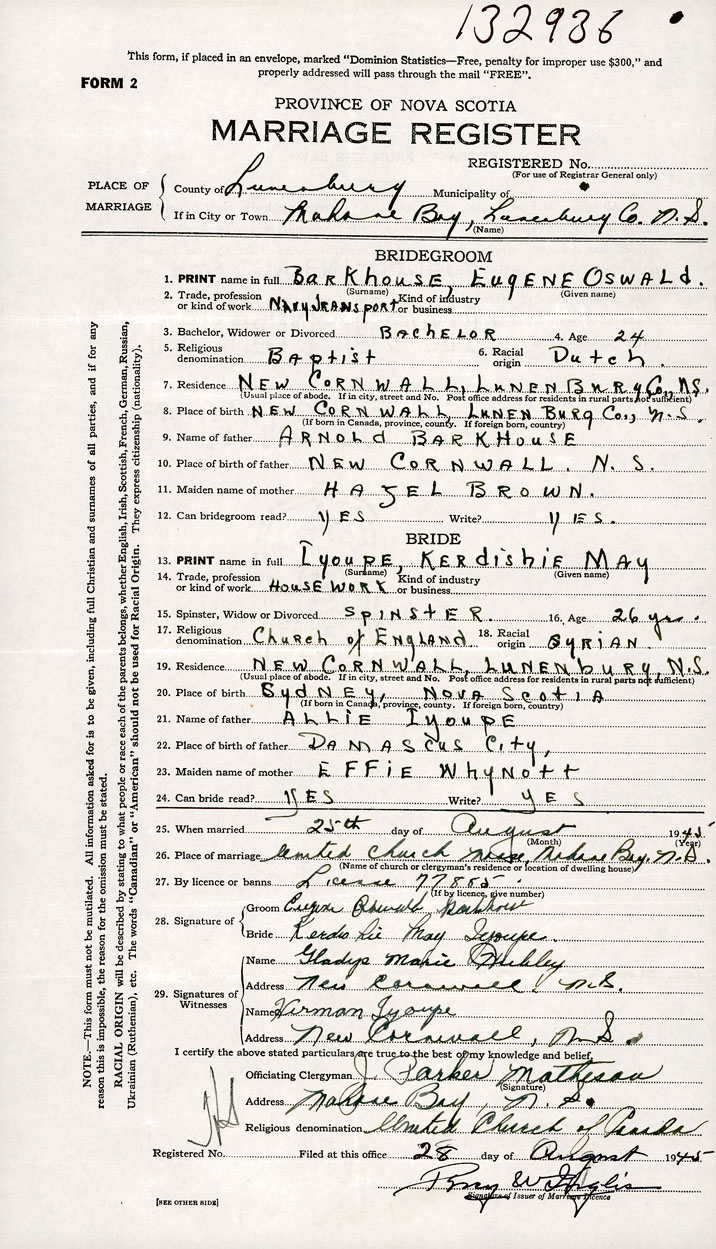 132936
This form, if placed in an envelope, marked "Dominion Statistics—Free, penalty for improper use $300," and
properly addressed will pass through the mail "FREE".
FORM 2
PROVINCE OF NOVA SCOTIA
MARRIAGE REGISTER
REGISTERED No.
(For use of Registrar General only)
PLACE OF MARRIAGE
County of Lunenburg Municipality of
If in City or Town Mahone Bay, Lunenburg Co. N.S.
(Name)
BRIDEGROOM
1. PRINT name in full BARKHOUSE, EUGENE OSWALD.
(Surname) (Given name)
2. Trade, profession or kind of work NAVY TRANSPORT Kind of industry or business
3. Bachelor, Widower or Divorced BACHELOR 4. Age 24
5. Religious denomination Baptist 6. Racial origin Dutch.
7. Residence NEW CORNWALL, LUNENBURY Co., N.S.
(Usual place of abode. If in city, street and No. Post office address for residents in rural parts not sufficient)
8. Place of birth NEW CORNWALL, LUNENBURG Co., N.S.
(If born in Canada, province, county. If foreign born, country)
9. Name of father ARNOLD BARKHOUSE
10. Place of birth of father NEW CORNWALL. N.S.
11. Maiden name of mother HAZEL BROWN.
12. Can bridegroom read? YES Write? YES.
BRIDE
13. PRINT name in full Iyoupe, KERDISHIE MAY
(Surname) (Given name)
14. Trade, profession or kind of work HOUSE WORK Kind of industry or business
15. Spinster, Widow or Divorced SPINSTER. 16. Age 26 yrs.
17. Religious denomination Church of ENGLAND 18. Racial origin SYRIAN.
19. Residence NEW CORNWALL, LUNENBURY, N.S.
(Usual place of abode. If in city, street and No. Post office address for residents in rural parts not sufficient)
20. Place of birth SYDNEY, NOVA SCOTIA
(If born in Canada, province, county. If foreign born, country)
21. Name of father ALLIE IYOUPE
22. Place of birth of father DAMASCUS CITY,
23. Maiden name of mother EFFIE WHYNOTT
24. Can bride read? YES Write? YES
25. When married 25th day of August 1945
(Month) (Year)
26. Place of marriage United Church Mahone Bay, N.S.
(Name of church or clergyman's residence or location of dwelling house)
27. By licence or banns License 77885
(If by licence, give number)
28. Signature of
Groom Eugene Oswald Barkhouse
Bride Kerdishie May Iyoupe.
29. Signatures of Witnesses
Name Gladys Marie
Address New Cornwall, N.S.
Name Iyoupe
Address New Cornwall, N.S.
I certify the above stated particulars are true to the best of my knowledge and belief.
Officiating Clergyman J. Parker Matheson
(Signature)
Address Mahone Bay, N.S.
Religious denomination United Church of Canada
Registered No. Filed at this office 28 day of August 1945
Inglis
Signature of Issuer of Marriage Licence
[SEE OTHER SIDE]
NOTE.—This form must not be mutilated. All information asked for is to be given, including full Christian and surnames of all parties, and if for any
reason this is impossible, the reason for the omission must be stated.
RACIAL ORIGIN will be described by stating to what people or race each of the parents belongs, whether English, Irish, Scottish, French, German, Russian,
Ukrainian (Ruthenian), etc. The words "Canadian" or "American" should not be used for Racial Origin. They express citizenship (nationality).